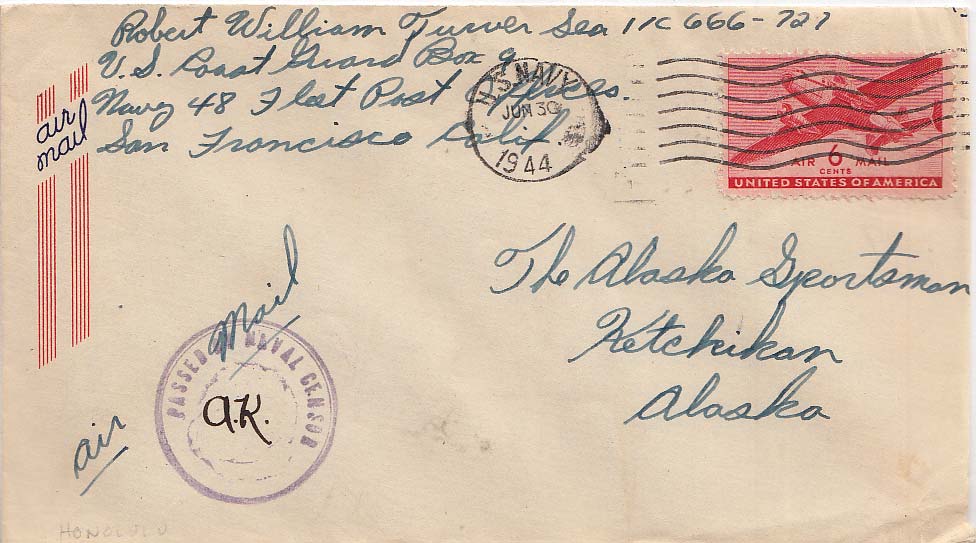 Robert William Turver Sea 1/c 666-727
U.S. Coast Guard Box 9
Navy 48 Fleet Post Offices.
San Francisco Calif.
air
mail
U.S. NAVY
JUN 30
1944
AIR 6 MAIL
CENTS
UNITED STATES OF AMERICA
The Alaska Sportsman
Ketchikan
Alaska
air Mail
PASSED NAVAL CENSOR
A.K.
HONOLULU